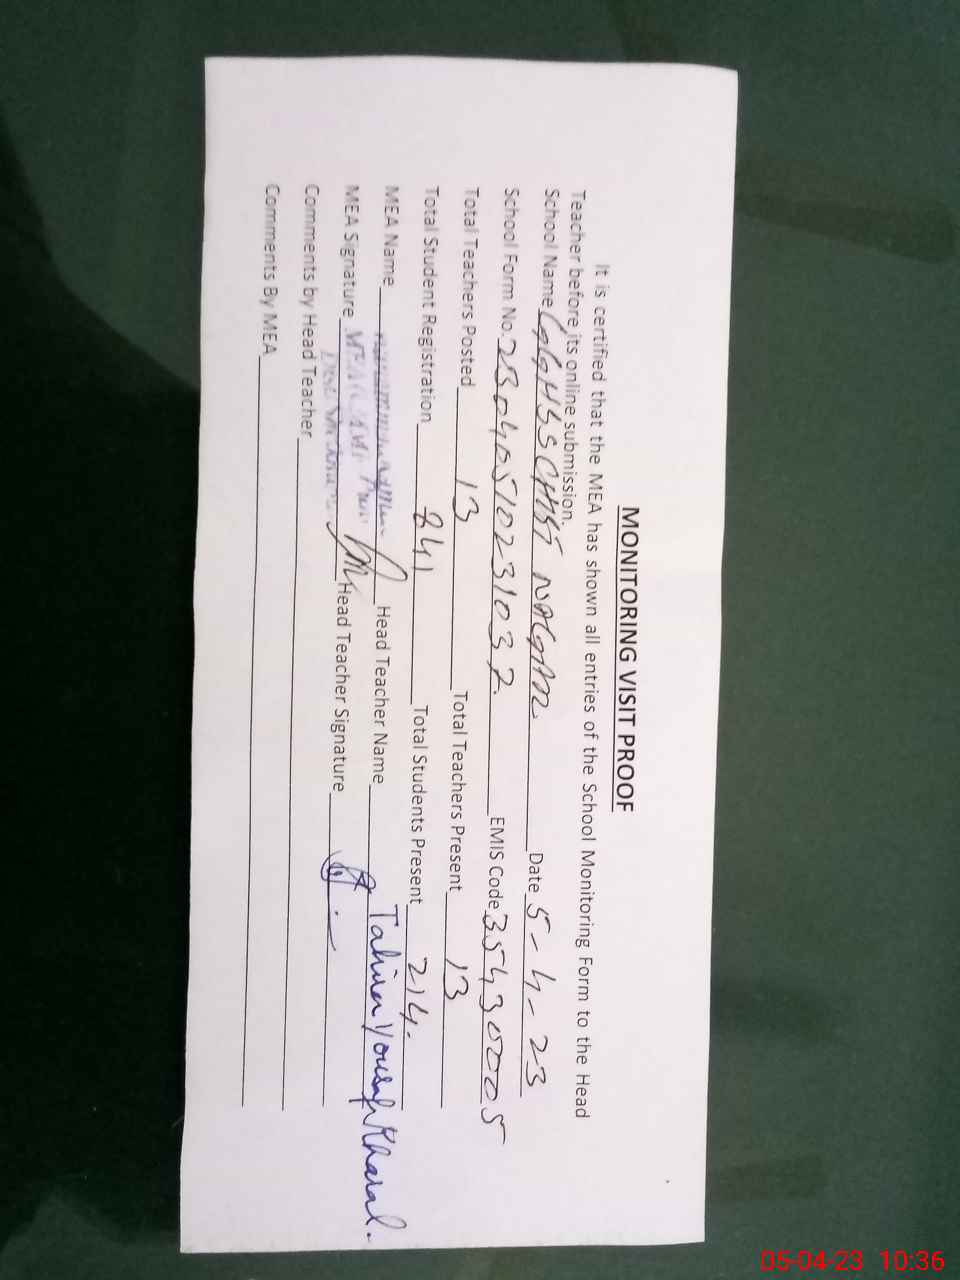 MONITORING VISIT PROOF
It is certified that the MEA has shown all entries of the School Monitoring Form to the Head
Teacher before its online submission.
School Name GGHSS CHISTI NAGAR. Date 5-4-23
School Form No. EMIS Code 354300005
Total Teachers Posted 13 Total Teachers Present 13
Total Student Registration 841 Total Students Present 214.
MEA Name Head Teacher Name Tahira Yousaf Kharal.
MEA Signature Head Teacher Signature
Comments by Head Teacher
Comments By MEA
05-04-23 10:36